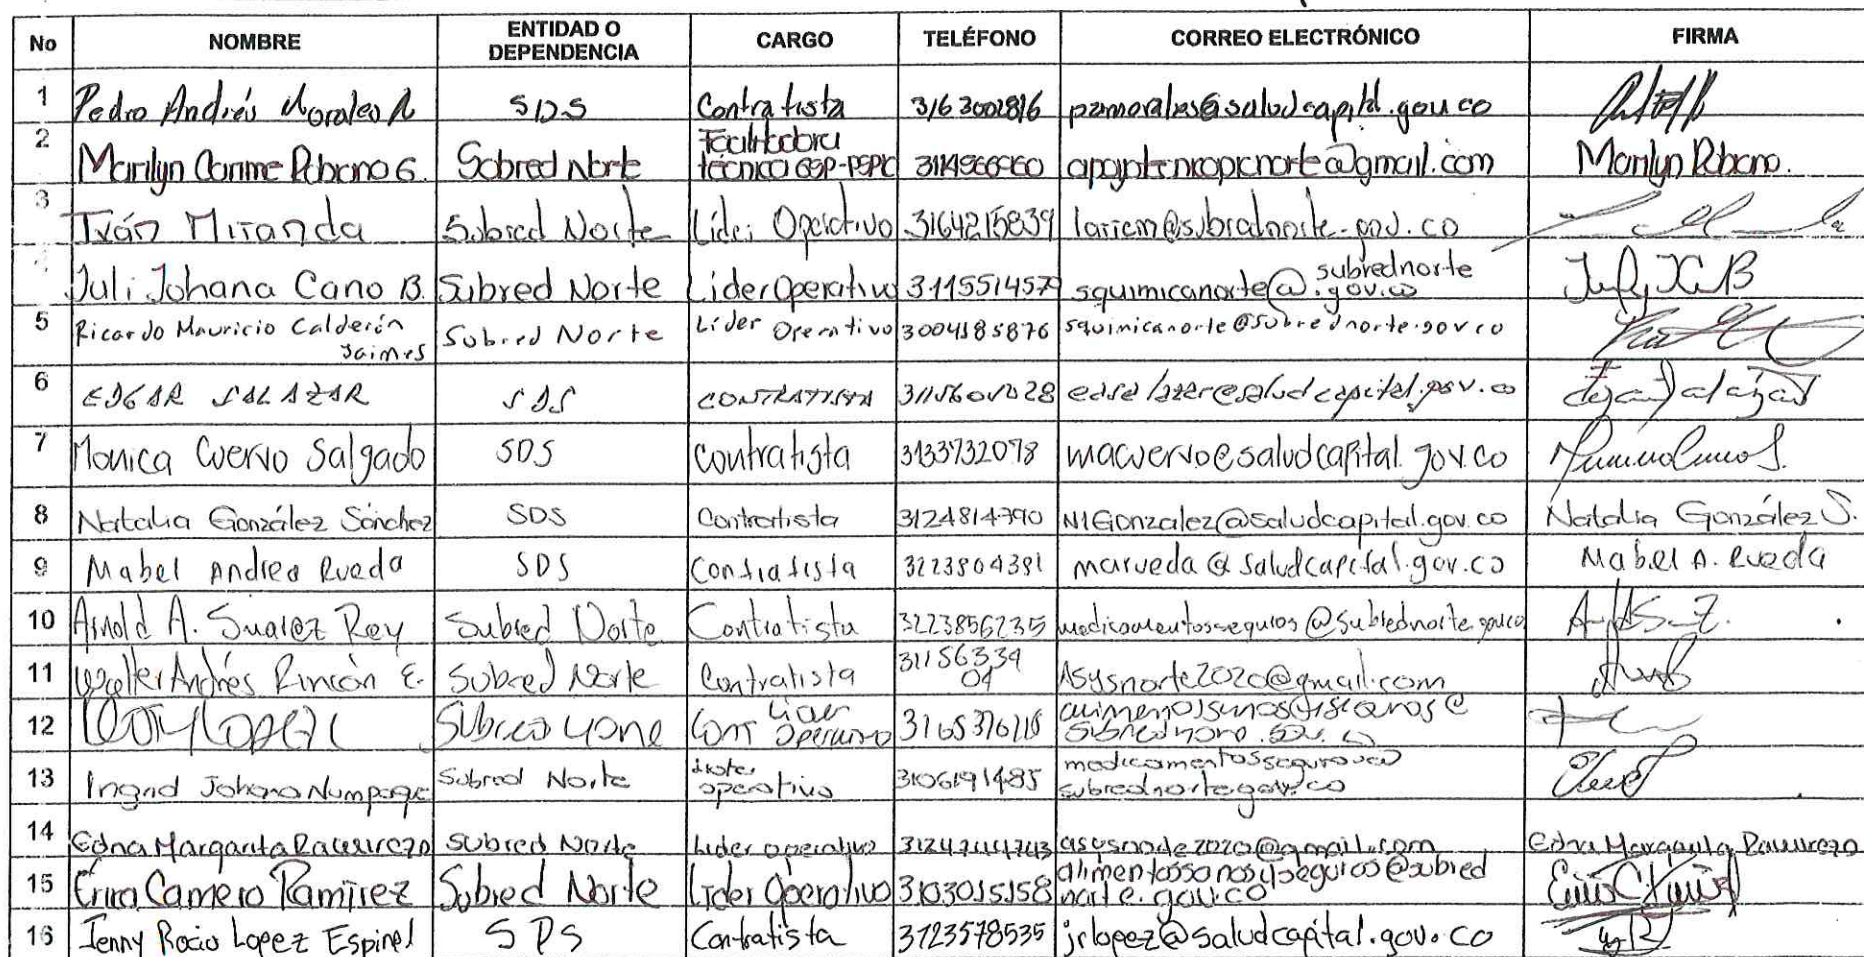 No NOMBRE ENTIDAD O DEPENDENCIA CARGO TELÉFONO CORREO ELECTRÓNICO FIRMA
1 Pedro Andrés Morales R SDS Contratista 3163002816 pamorales@salud.gov.co
2 Marilyn Subred Norte Facilitadora técnico GSP-PSPIC @gmail.com Marilyn
3 Iván Miranda Subred Norte Líder Operativo 3164215839
Juli Johana Cano B. Subred Norte Líder Operativo 3115514579 squimicanorte@subrednorte.gov.co
5 Ricardo Mauricio Calderón Jaimes Subred Norte Líder Operativo 3004185876 squimicanorte@subrednorte.gov.co
6 EDGAR SALAZAR SDS CONTRATISTA
7 Monica Cuervo Salgado SDS Contratista 3133732078 macuervo@saludcapital.gov.co
8 Natalia González Sánchez SDS Contratista 3124814790 N1Gonzalez@saludcapital.gov.co Natalia González S.
9 Mabel Andrea Rueda SDS Contratista 3223804381 marueda@saludcapital.gov.co Mabel A. Rueda
10 Arnold A. Suarez Rey Subred Norte Contratista 3223856235 medicamentosseguros@subrednorte.gov.co
11 Walter Andrés Rincón E. Subred Norte Contratista 3115633904 Asysnorte2020@gmail.com
12 Subred Líder Operativo
13 Ingrid Johana Numpaque Subred Norte Líder operativo 3106191485 subrednorte.gov.co
14 Edna Margarita Subred Norte Líder operativo @gmail.com Edna Margarita
15 Erica Camero Ramírez Subred Norte Líder Operativo 3103015158 alimentossanosyseguros@subrednorte.gov.co
16 Jenny Rocio Lopez Espinel SDS Contratista 3123578535 jrlopez@saludcapital.gov.co